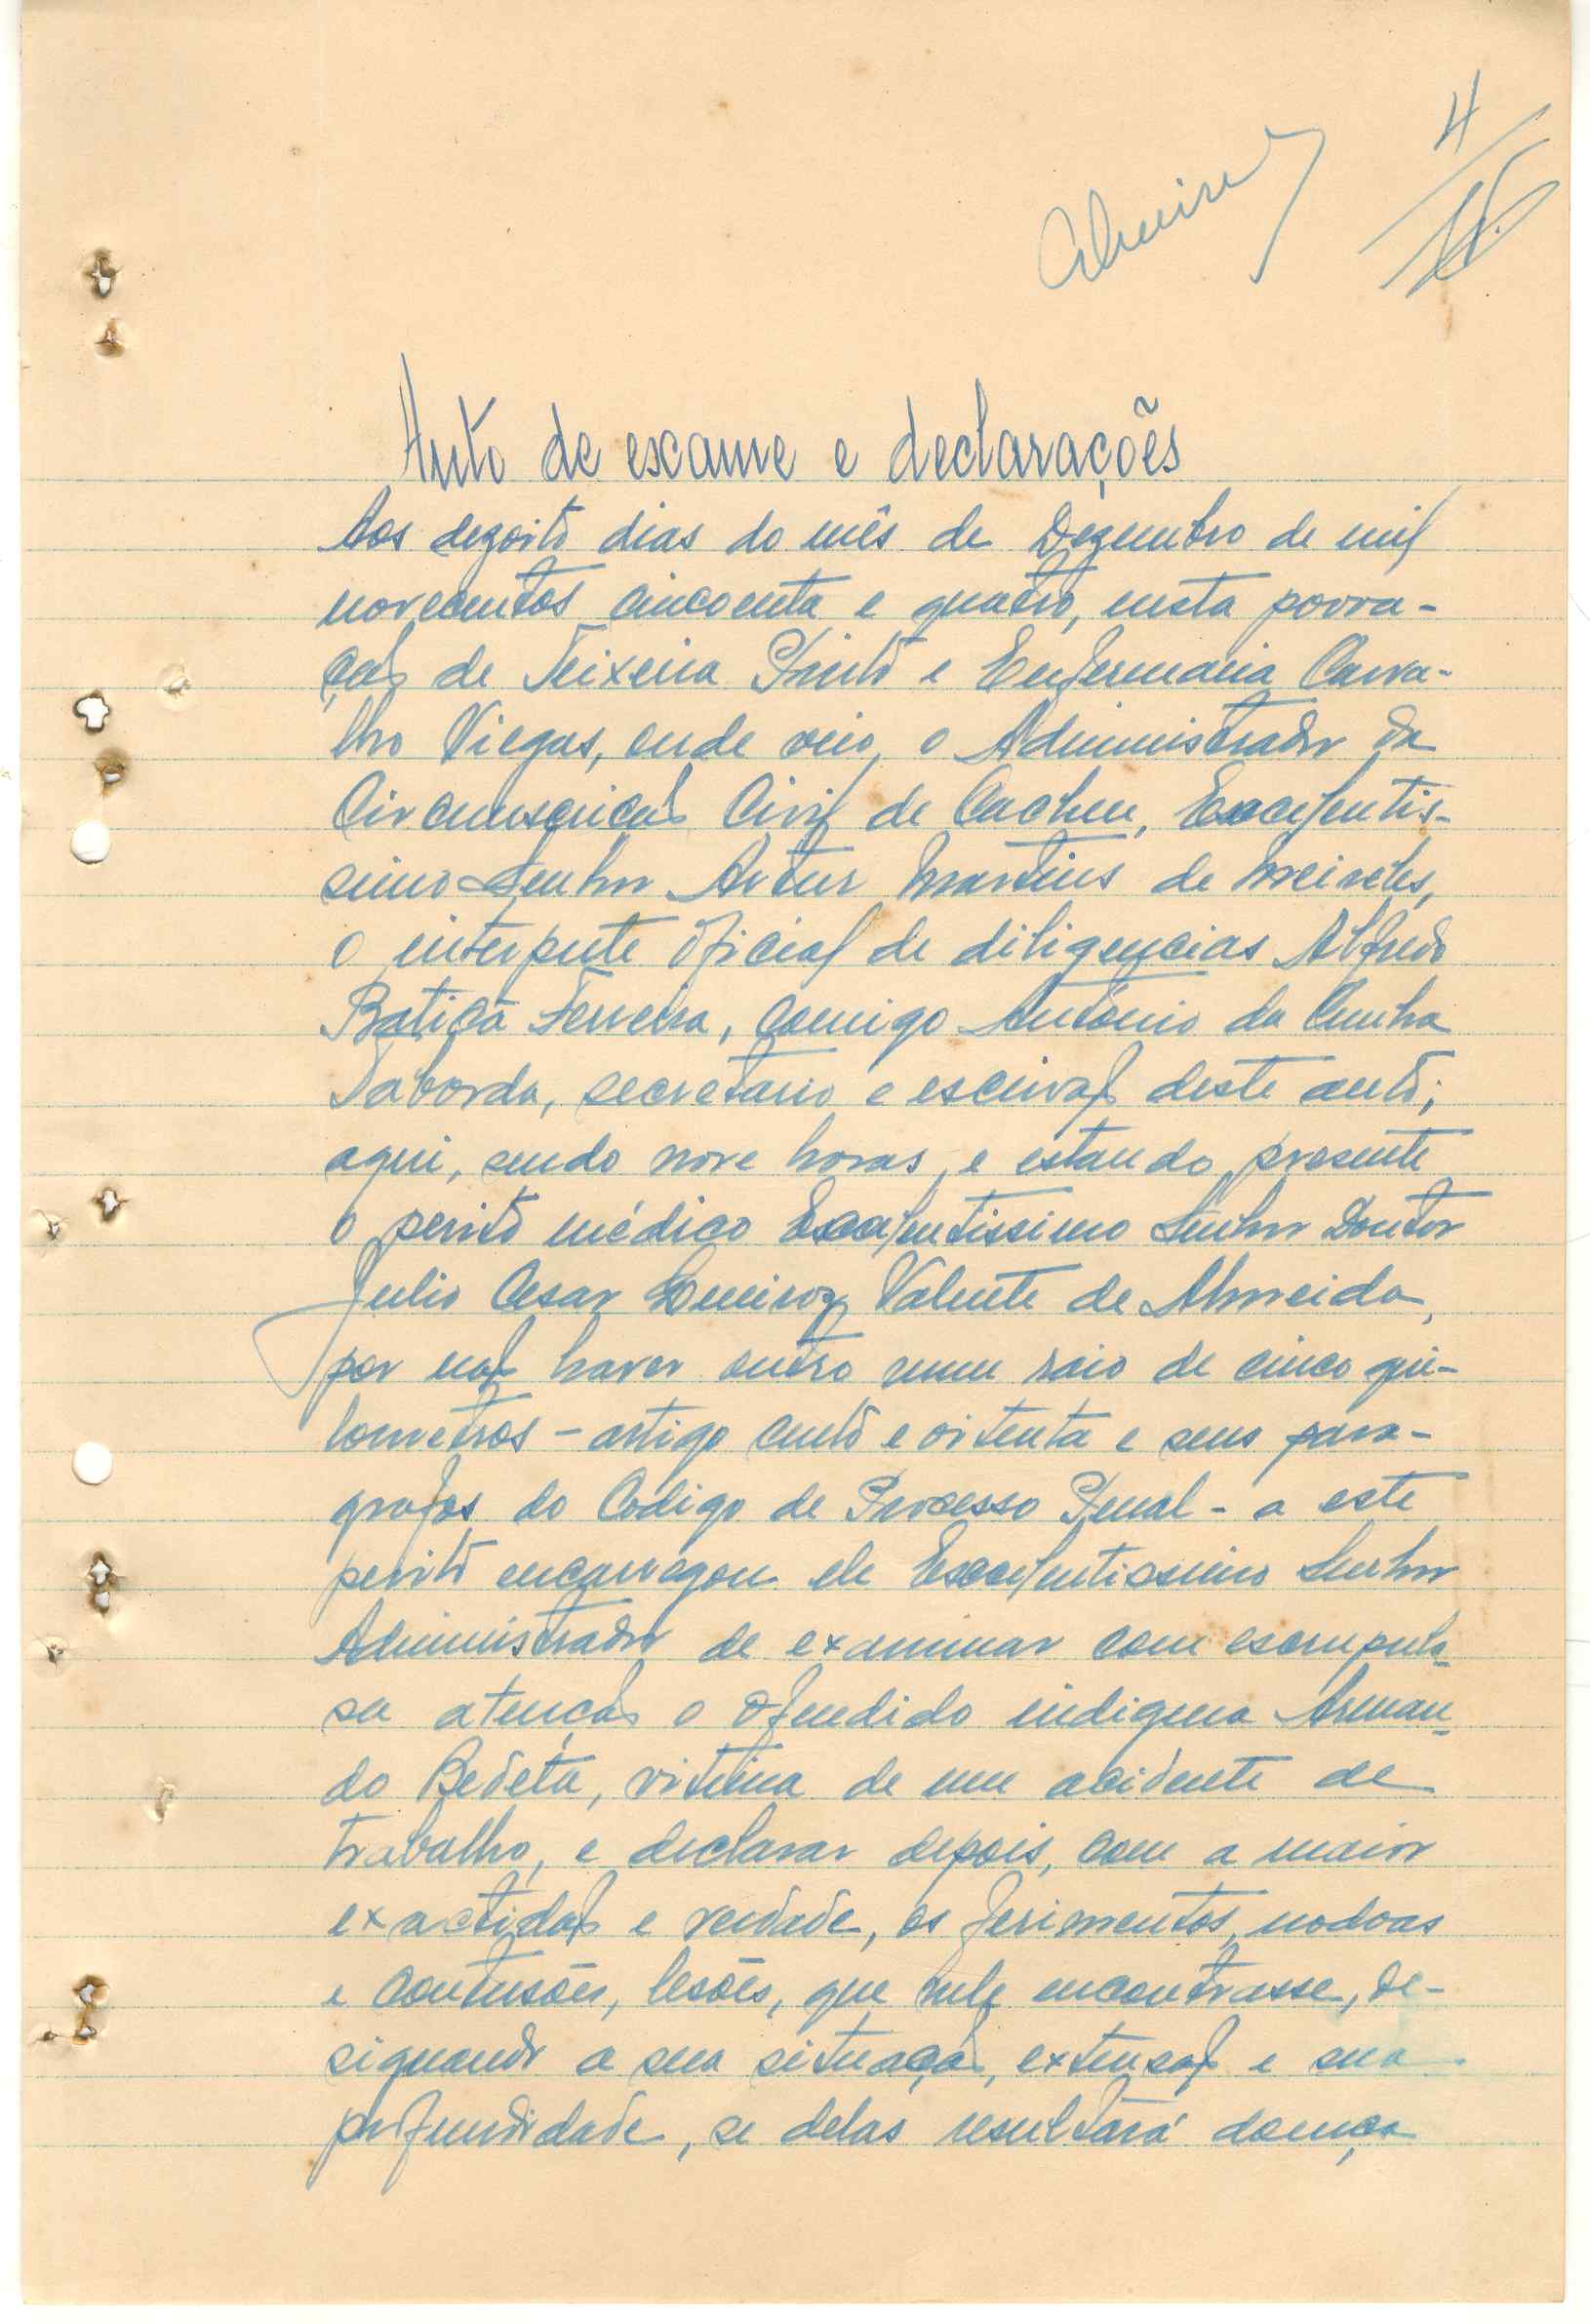 4
Auto de exame e declarações
Aos dezoito dias do mês de Dezembro de mil
novecentos cincoenta e quatro, nesta povoa-
ção de Teixeira Pinto e Enfermaria Carva-
lho Viegas, onde veio o Administrador da
Circunscrição Civil de Cacheu, Excelentis-
simo Senhor Artur Martins de Meireles,
o interprete oficial de diligencias Alfredo
Batiçã Ferreira, comigo António da Cunha
Taborda, secretario e escrivão deste auto;
aqui, sendo nove horas, e estando presente
o perito médico Excelentissimo Senhor Doutor
Julio Cesar Valente de Almeida,
por não haver outro num raio de cinco qui-
lometros - artigo cento e oitenta e seus para-
grafos do Codigo de Processo Penal - a este
perito encarregou ele Excelentissimo Senhor
Administrador de examinar com escrupulo-
sa atenção o ofendido indigena Arman-
do Bedeta, vitima de um acidente de
trabalho, e declarar depois, com a maior
exactidão e verdade, os ferimentos, nodoas
e contusões, lesões, que nele encontrasse, de-
signando a sua situação, extensão e sua
profundidade, se delas resultará doença